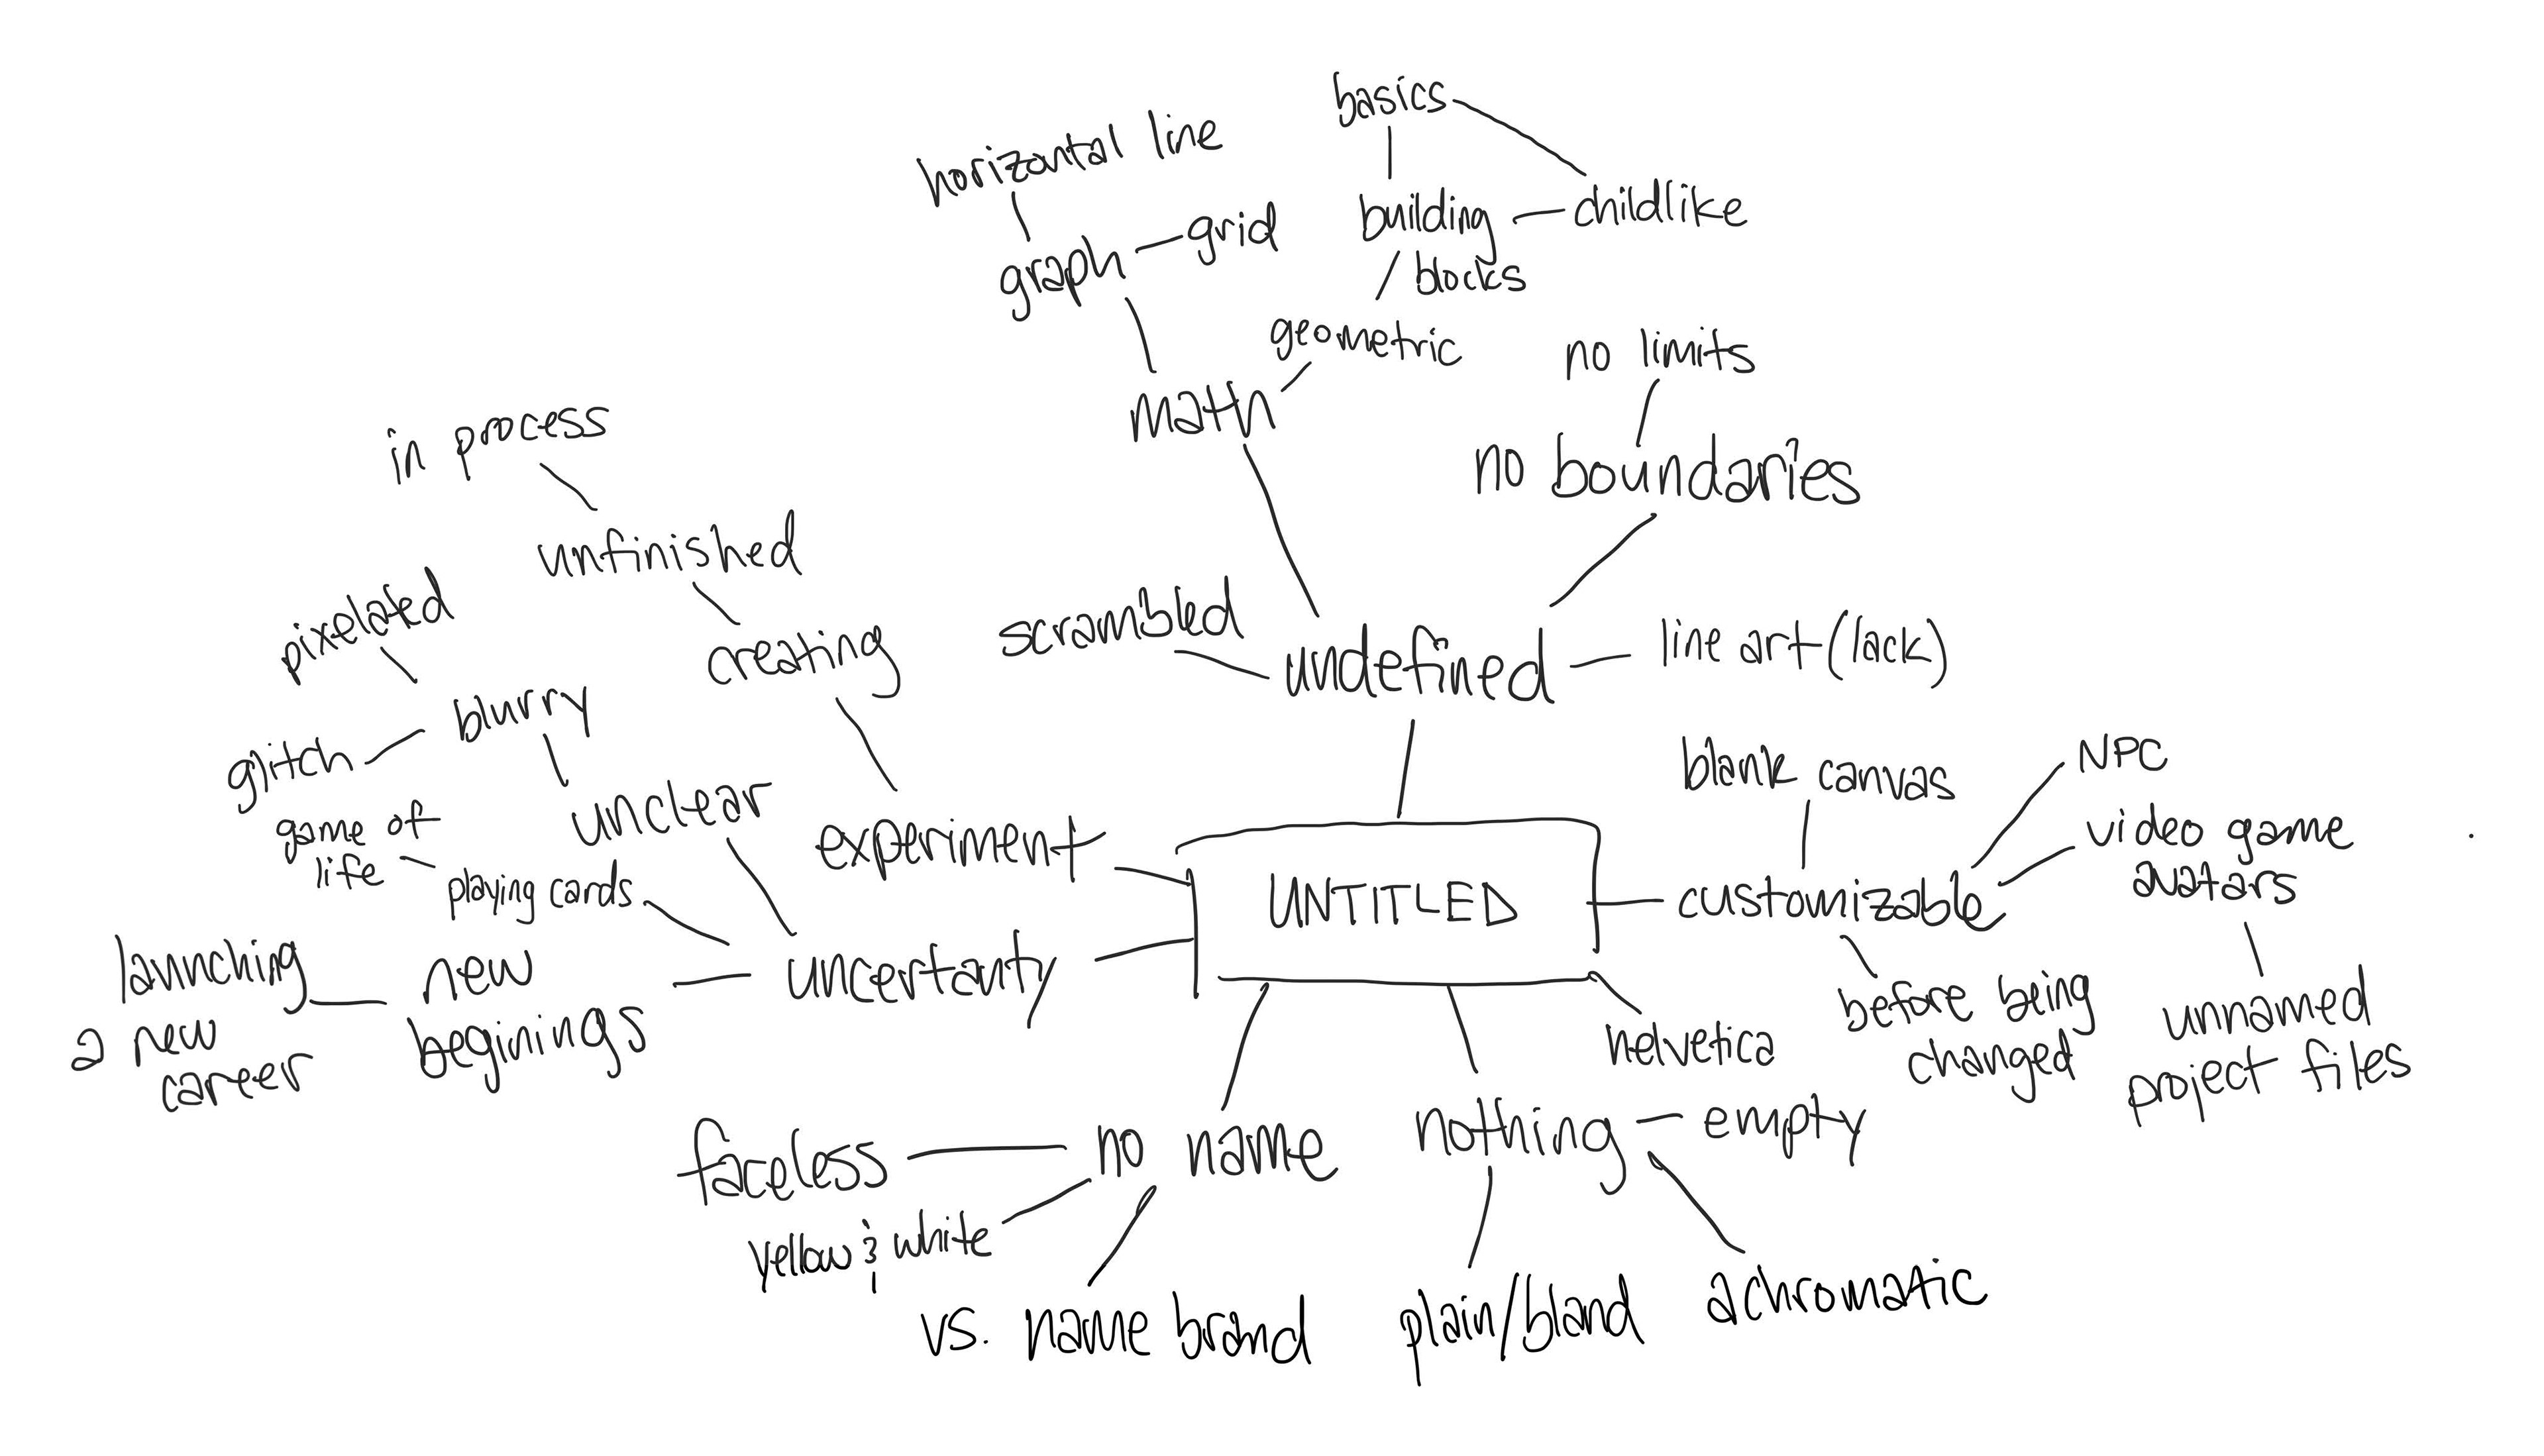 basics
horizontal line
building
blocks
childlike
graph
grid
geometric
no limits
math
no boundaries
in process
unfinished
scrambled
undefined
line art (lack)
pixelated
creating
blurry
glitch
blank canvas
NPC
unclear
experiment
video game
avatars
game of
life
playing cards
UNTITLED
customizable
launching
a new
career
new
beginings
uncertanty
helvetica
before being
changed
unnamed
project files
faceless
no name
nothing
empty
yellow & white
vs. name brand
plain/bland
achromatic